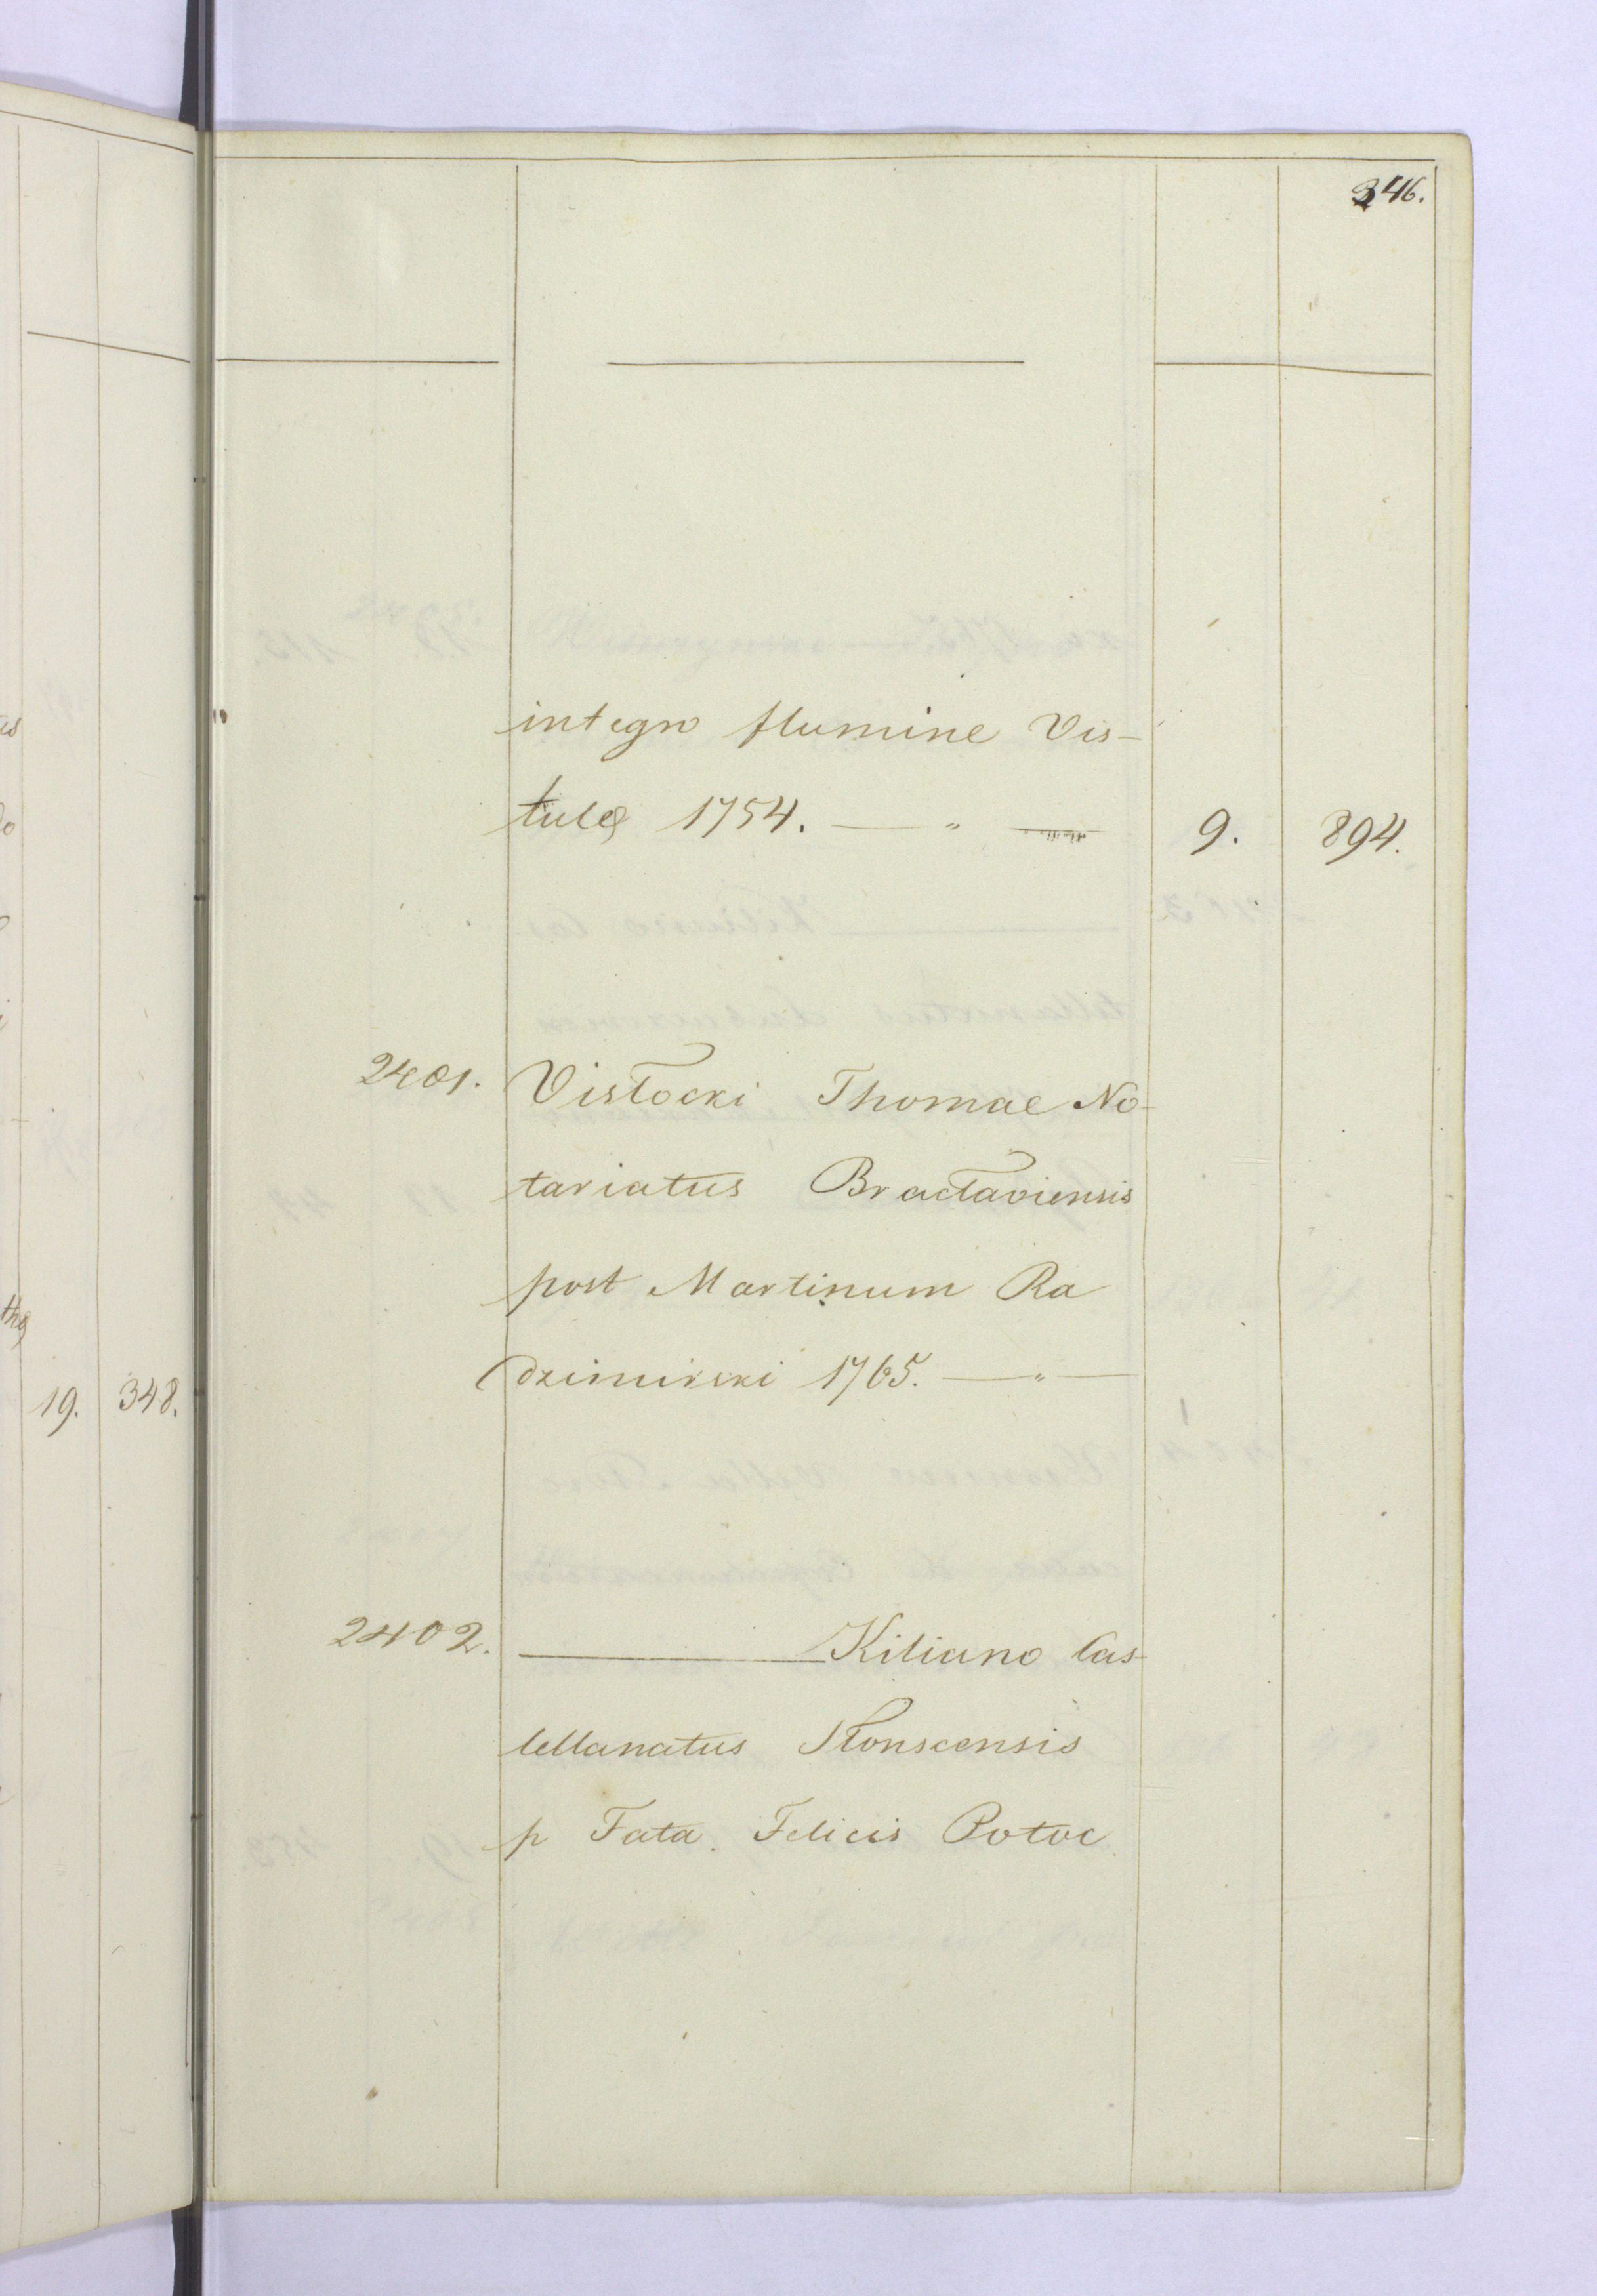 346.
integro flumine Vis-
tulę 1754. — " — 9. 894.
2401. Vistocki Thomae No-
tariatus Bractaviensis
post Martinum Ra
dzimirski 1765. — " —
19. 348.
2402. ——— Kiliano Cas-
tellanatus Słonscensis
p Fata. Felicis Potoc